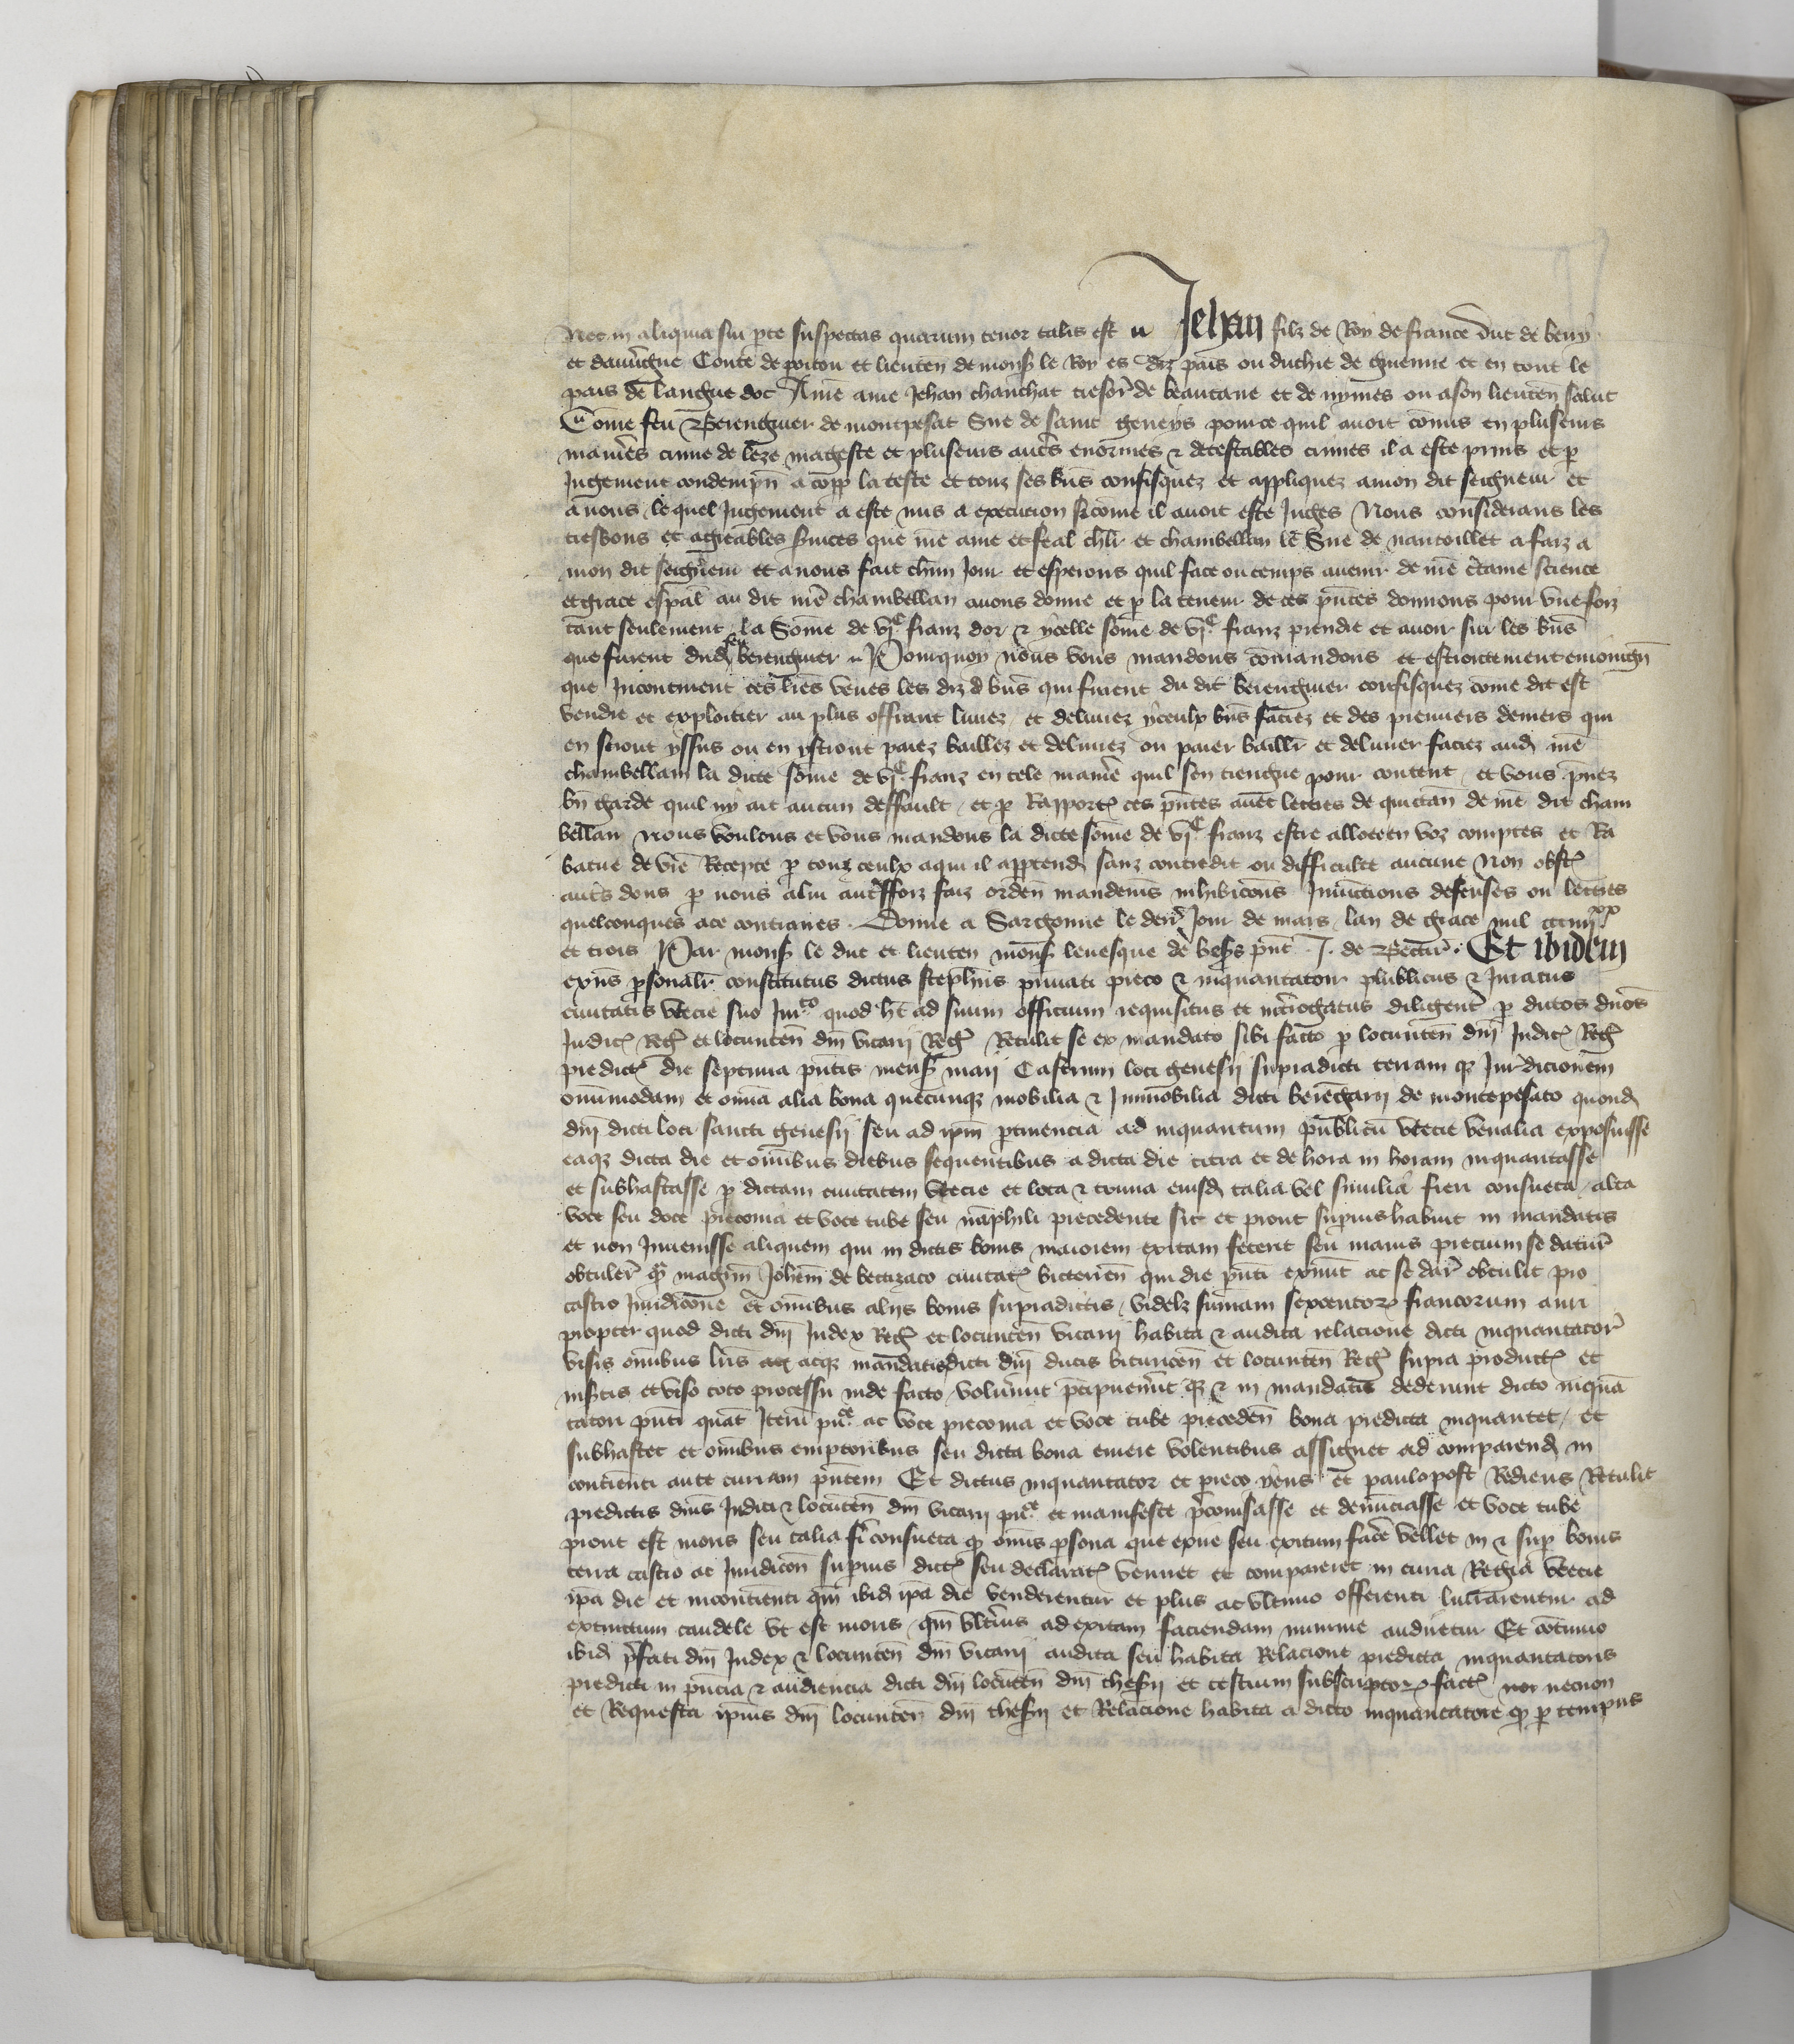 Nec in aliqua sui pte suspectas quarum tenor talis est Jehan filz de Roy de france Duc de berry
et dauvergne Conte de poitou et lieuten de mons le Roy es diz pais ou duchie de guienne et en tout le
pais de langue doc Ame ame Jehan chauchat tresor de beaucaire et de nymes ou a son lieuten salut
Come feu Berenguier de montpesat Sire de saint genieys pour ce quil avoit comis en pluseurs
manieres crime de leze mageste et pluseurs autres enormes & detestables crimes il a este prins et p
Jugement condempn a copp la teste et touz ses biens confisquez et appliquez a mon dit seigneur et
a nous le quel Jugement a este mis a execution si come il avoit este Jugies Nous considerans les
tresbons et agreables services que nre ame et feal chlr et chambellan le Sire de nantoillet a faiz a
mon dit seigneur et a nous fait chun Jour et esperons quil face ou temps avenir de nre ctaine science
et grace espal au dit nre chambellan avons donne et p la teneur de ces pntes donnons pour une foiz
tant seulement la Some de vjc franz dor & ycelle some de vjc franz prendre et avoir sur les bns
que furent dud feu berenguier Pourquoy nous vous mandons comandons et estroictement enioign
que Incontinent ces lres veues les diz bns qui furent du dit berenguier confisquez come dit est
vendre et exploitier au plus offrant livrez et delivrez yceulx bns faciez et des premiers deniers qui
en seront yssus ou en ystront paiez baillez et delivrez ou paier baillr et delivrer faciez aud nre
chambellam la dicte some de vjc franz en tele maniere quil sen tiengne pour content et vous prnez
bn garde quil ny ait aucun deffault et p Rapport ces pntes avec lettres de quictan de nre dit cham
bellan nous voulons et vous mandons la dicte some de vjc franz estre alloee en voz comptes et Ra
batue de vre Recepte p touz ceulx a qui il apptend sanz contredit ou difficulte aucune Non obst
autres dons p nous a lui autresfoiz faiz orden mandemns inhibicons Iniunctions defenses ou lettres
quelconques a ce contraires. Donne a Sargonne le derr Jour de mars lan de grace mil ccciiijxx
et trois Par mons le duc et lieuten mons levesque de pnt J. de Et ibidem
exns psonalr constitutus dictus stephns privati preco & inquantator plublicus & Juratus
civitatis Utecie suo Jurto quod ht ad suum officium requisitus et intrrogatus diligent p dictos dnos
Judic Reg et locunten dni vicarij Reg Retulit se ex mandato sibi facto p locunten dni Judic Reg
predict die septima pntis mens maij Castrum loci genesij supradicti terram q Jurdicionem
omimodam et omia alia bona quecunq mobilia & Immobilia dicti berengarij de montepesato quond
dni dicti loci sancti genesij seu ad ipm ptinencia ad inquantum publicu Utecie venalia exposuisse
eaq dicta die et omibus diebus sequentibus a dicta die citra et de hora in horam inquantasse
et subhastasse p dictam civitatem Utecie et loca & ejusd talia vel similia fieri consueta alta
voce seu doce preconia et voce tube seu naphili precedente sic et prout supius habuit in mandatis
et non Invenisse aliquem qui in dictis bonis maiorem exitam fecerit seu maius precium se datur
obtuler q magrm Johem de civitat qui die pnti ac se dar obtulit pro
castro Juridicone et omibus alijs bonis supradictis videlz sumam sexcentor francorum auri
propter quod dicti dni Judex Reg et locunten vicarij habita & audita relacione dicti inquantator
visis omibus lris atq mandatis dicti dni ducis bituricen et locunten Reg supra product et
insertis et viso toto processu inde facto voluerunt pcipuerut q & in mandatis dederunt dicto inquan
tatori pnti quat Iteru puce ac voce preconia et voce tube preceden bona predicta inquantet et
subhastet et omibus emptoribus seu dicta bona emere volentibus assignet ad comparend in
contineti ante curiam pntem Et dictus inquantator et preco yens et paulo post Rediens Retulit
predictis dnis Judici & locuten dni vicarij puce et manifeste preconisasse et denunciasse et voce tube
prout est moris seu talia fri consueta q omis psona que seu exitum face vellet in & sup bonis
terra castro ac Juridicon supius dict seu declarat veniret et compareret in curia Regia Utecie
ipa die et incontineti qm ibid ipa die venderentur et plus ac ultimo offerenti ad
extinctum candele ut est moris qm ulterius ad exitam faciendam minime admitetur Et cotinuo
ibid prfati dni Judex & locunten dni vicarij audita seu habita Relacione predicta inquantatoris
predicti in pncia & audiencia dicti dni locuten dni thesrij et testium subscriptor fact necnon
et Requesta ipius dni locunten dni thesrij et Relacione habita a dicto inquantatore q p tempus